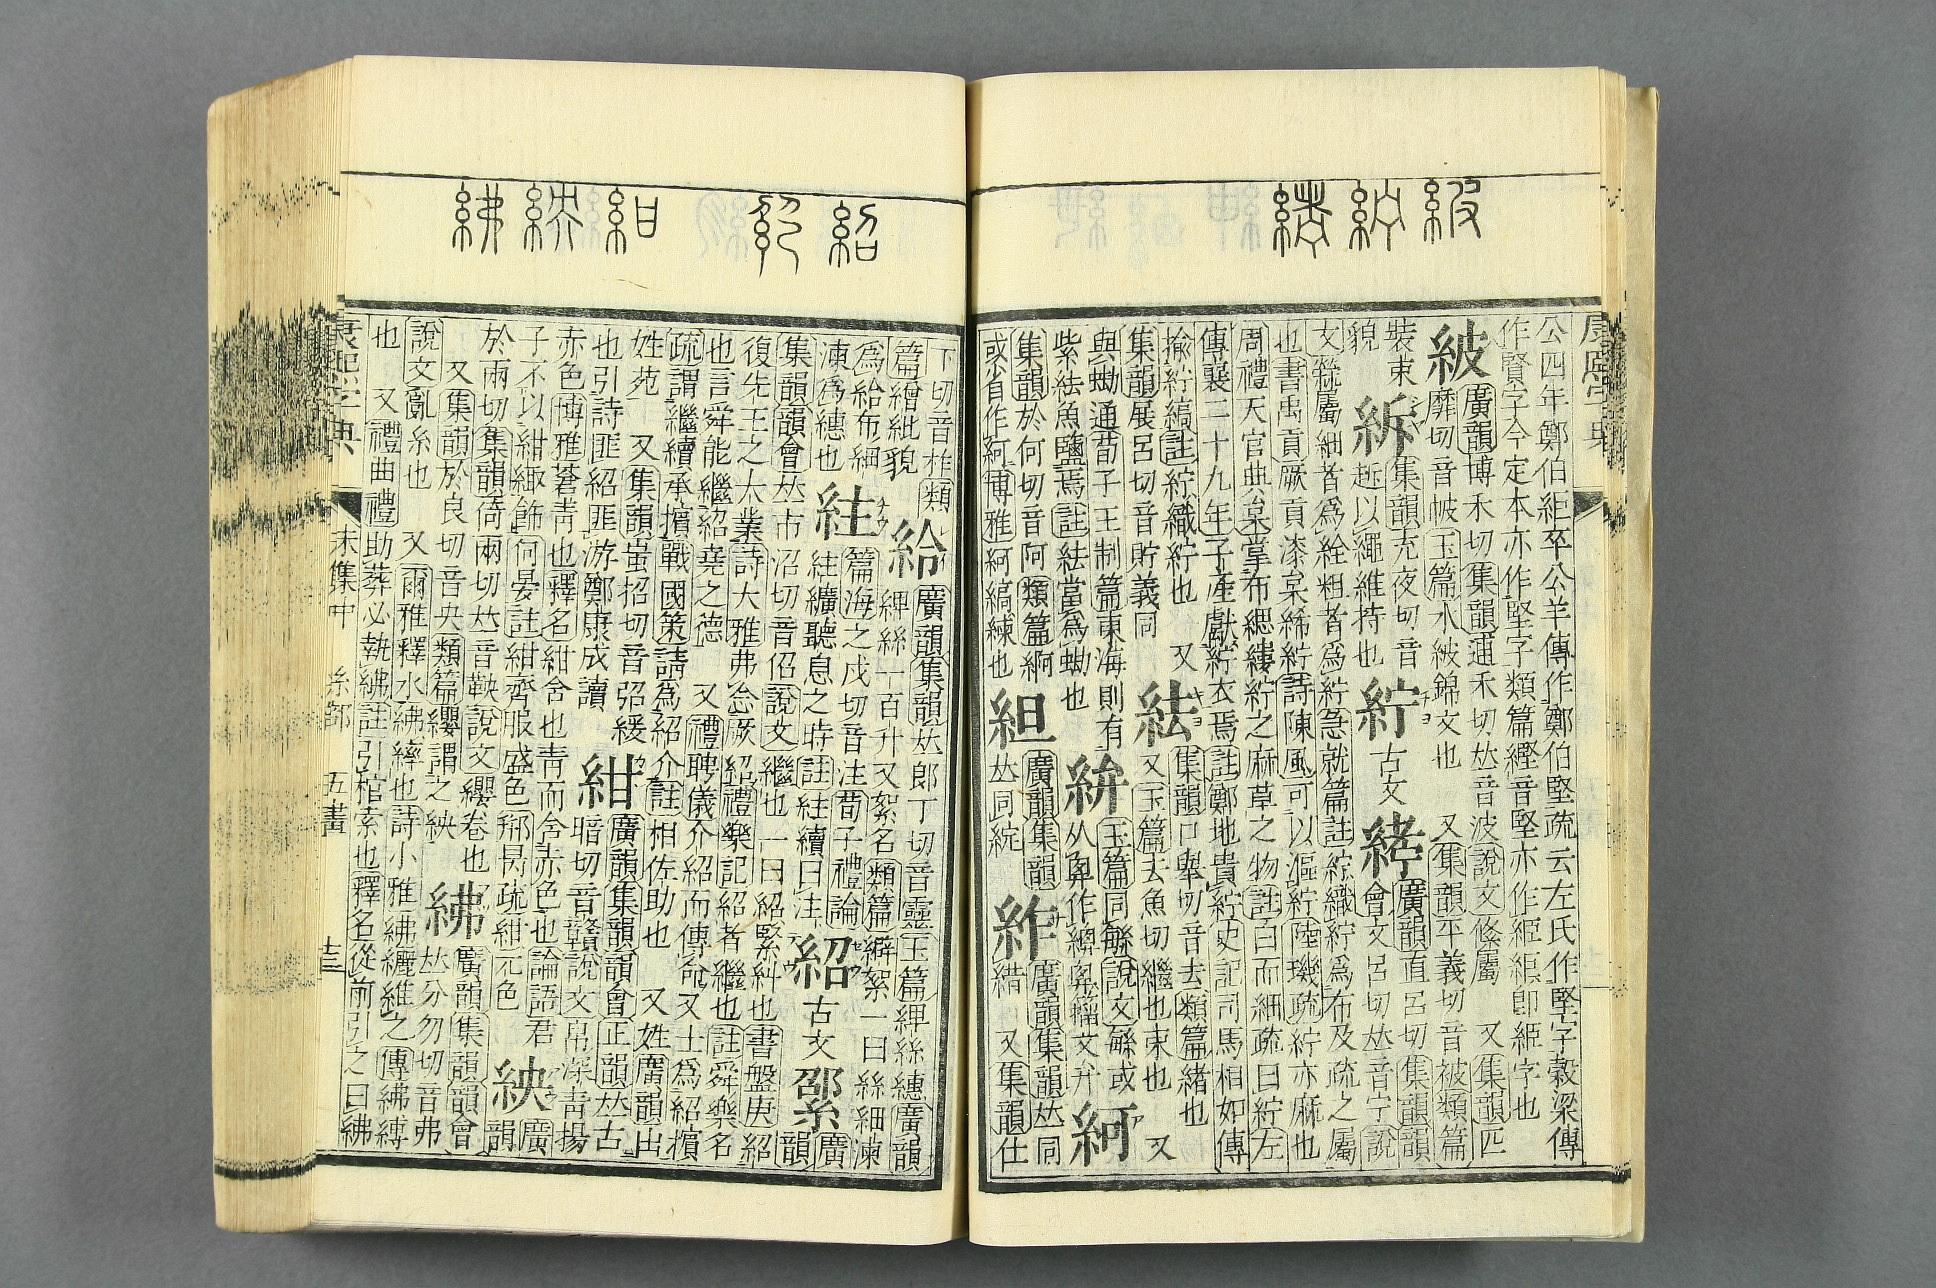 康熙字典
公四年鄭伯䋫卒公羊傳作鄭伯堅疏云左氏作堅字穀梁傳
作賢字今定本亦作堅字
紴
廣韻博禾切集韻逋禾切𠀤音波說文絛屬 又集韻匹
靡切音帔玉篇水紴錦文也 又集韻平義切音被類篇
裝束貌
集韻充夜切音
以繩維持也
紵
古文
廣韻直呂切集韻韻
會丈呂切𠀤音宁說
文䋈屬細者爲絟粗者爲紵急就篇註織紵爲布及疏之屬
也書禹貢厥貢漆枲絺紵詩陳風可以漚紵陸璣疏紵亦麻也
周禮天官典枲掌布緦縷紵之麻草之物註白而細疏曰紵左
傳襄二十九年子產獻紵衣焉註鄭地貴紵史記司馬相如傳
揄紵縞註紵織紵也 又
集韻展呂切音貯義同
紶
集韻口舉切音去類篇緒也 又
又玉篇去魚切繼也束也
與蚨通荀子王制篇東海則有
紫紶魚鹽焉註紶當爲蚨也
玉篇同緐說文緐或
从𢍘作
紭
集韻於何切音阿類篇
或省作䋪博雅䋪縞練也
組
廣韻集韻
𠀤同綻
紨
廣韻集韻𠀤同
䋪 又集韻仕
下切音柞類
篇繒紕貌
紷
廣韻集韻𠀤郎丁切音靈玉篇縪絲繐廣韻
縪絲一百升又絮名類篇絮一曰絲細湅
爲紷布細
湅爲繐也
紸
篇海之戍切音注荀子禮論
紸纊聽息之時註紸續曰注
紹
古文
廣韻
集韻韻會𠀤市沼切音佋說文繼也一曰紹緊糾也書盤庚紹
復先王之大業詩大雅弗念厥紹禮樂記紹者繼也註舜樂名
也言舜能繼紹堯之德 又禮聘儀介紹而傳命又士爲紹擯
疏謂繼續承擯戰國策請爲紹介註相佐助也 又姓廣韻出
姓苑 又集韻蚩招切音弨緩
也引詩匪紹匪游鄭康成讀
紺
廣韻集韻韻會正韻𠀤古
暗切音贛說文帛深青揚
赤色博雅蒼青也釋名紺含也青而含赤色也論語君
子不以紺緅飾何晏註紺齊服盛色邢昺疏紺元色
紻
廣韻
於兩切集韻倚兩切𠀤音鞅說文纓卷也
又集韻於良切音央類篇纓謂之紻
紼
廣韻集韻韻會
𠀤分勿切音弗
說文亂糸也 又爾雅釋水紼䌫也詩小雅紼纚維之傳紼縴
也 又禮曲禮助葬必執紼註引棺索也釋名從前引之曰紼
康熙字典
未集中 糸部 五畫 十三